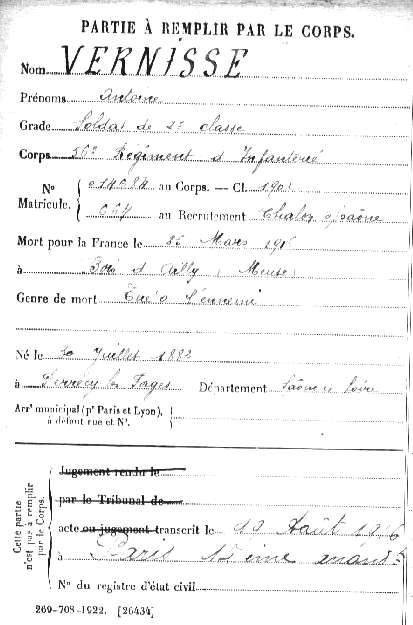 PARTIE À REMPLIR PAR LE CORPS.
Nom VERNISSE
Prénoms Antoine
Grade Soldat de 2e classe
Corps 56e Régiment d'Infanterie
N° Matricule. { au Corps. — Cl. 1902
au Recrutement Chalon s/Saône
Mort pour la France le Mars
à Bois d'Ailly (Meuse)
Genre de mort Tué à l'ennemi
Né le 30 Juillet 1882
à Perrecy les Forges Département Saône et Loire
Arrt municipal (pr Paris et Lyon),
à défaut rue et N°.
Cette partie n'est pas à remplir par le Corps.
Jugement rendu le
par le Tribunal de
acte ou jugement transcrit le 19 Août 1916
à Paris 15 ème arrondt
N° du registre d'état civil
269-708-1922. [26434]